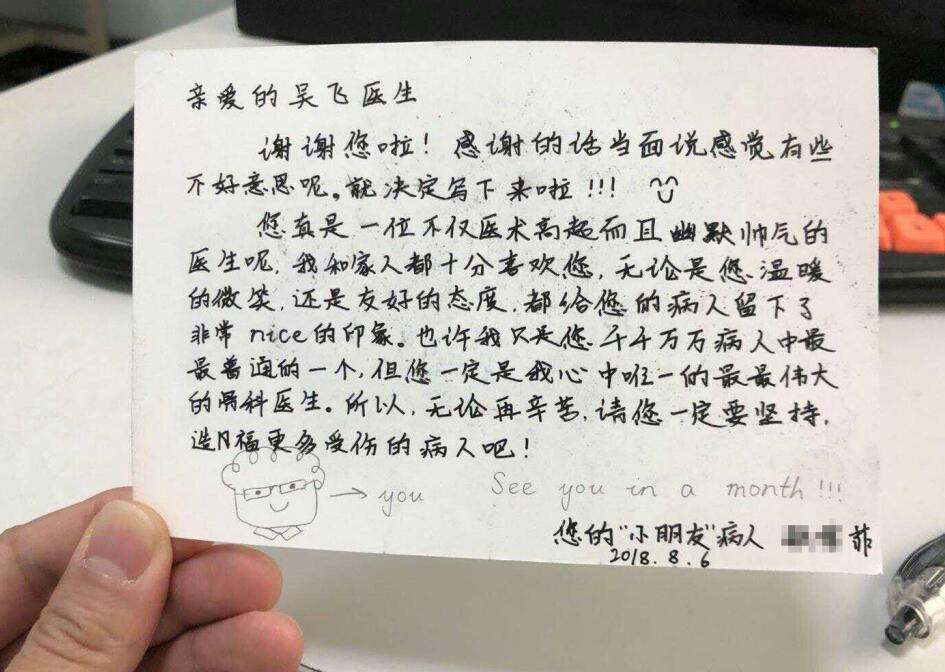 亲爱的吴飞医生
谢谢您啦！感谢的话当面说感觉有些
不好意思呢。就决定写下来啦!!!
您真是一位不仅医术高超而且幽默帅气的
医生呢，我和家人都十分喜欢您，无论是您温暖
的微笑，还是友好的态度，都给您的病人留下了
非常nice的印象。也许我只是您千千万万病人中最
最普通的一个，但您一定是我心中唯一的最最伟大
的骨科医生。所以，无论再辛苦，请您一定要坚持，
造福更多受伤的病人吧！
→ you See you in a month!!!
您的“小朋友”病人 菲
2018.8.6